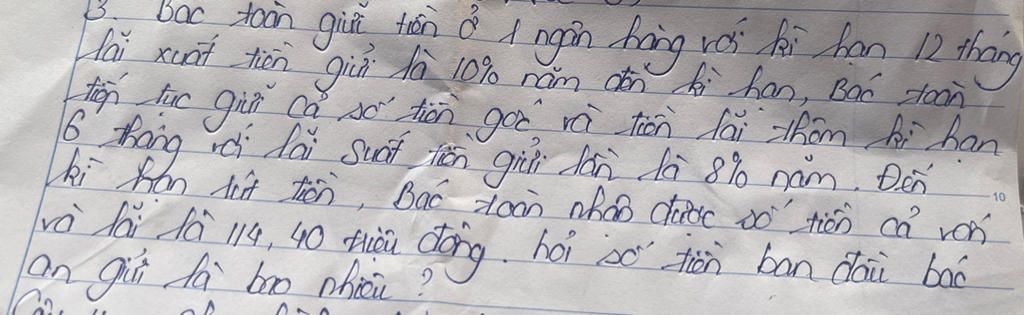 3. Bác toàn giưĩ tiền ở 1 ngân hàng với kì hạn 12 tháng
lãi xuất tiền giửi là 10% năm đến kì hạn, Bác toàn
tiếp tục giưĩ cả số tiền gốc và tiền lãi thêm kì hạn
6 tháng với lãi suất tiền giửi lần là 8% năm. Đến
kì hạn rút tiền, Bác toàn nhận được số tiền cả vốn
10
và lãi là 114,40 triệu đồng. hỏi số tiền ban đầu bác
an giửi là bao nhiêu?